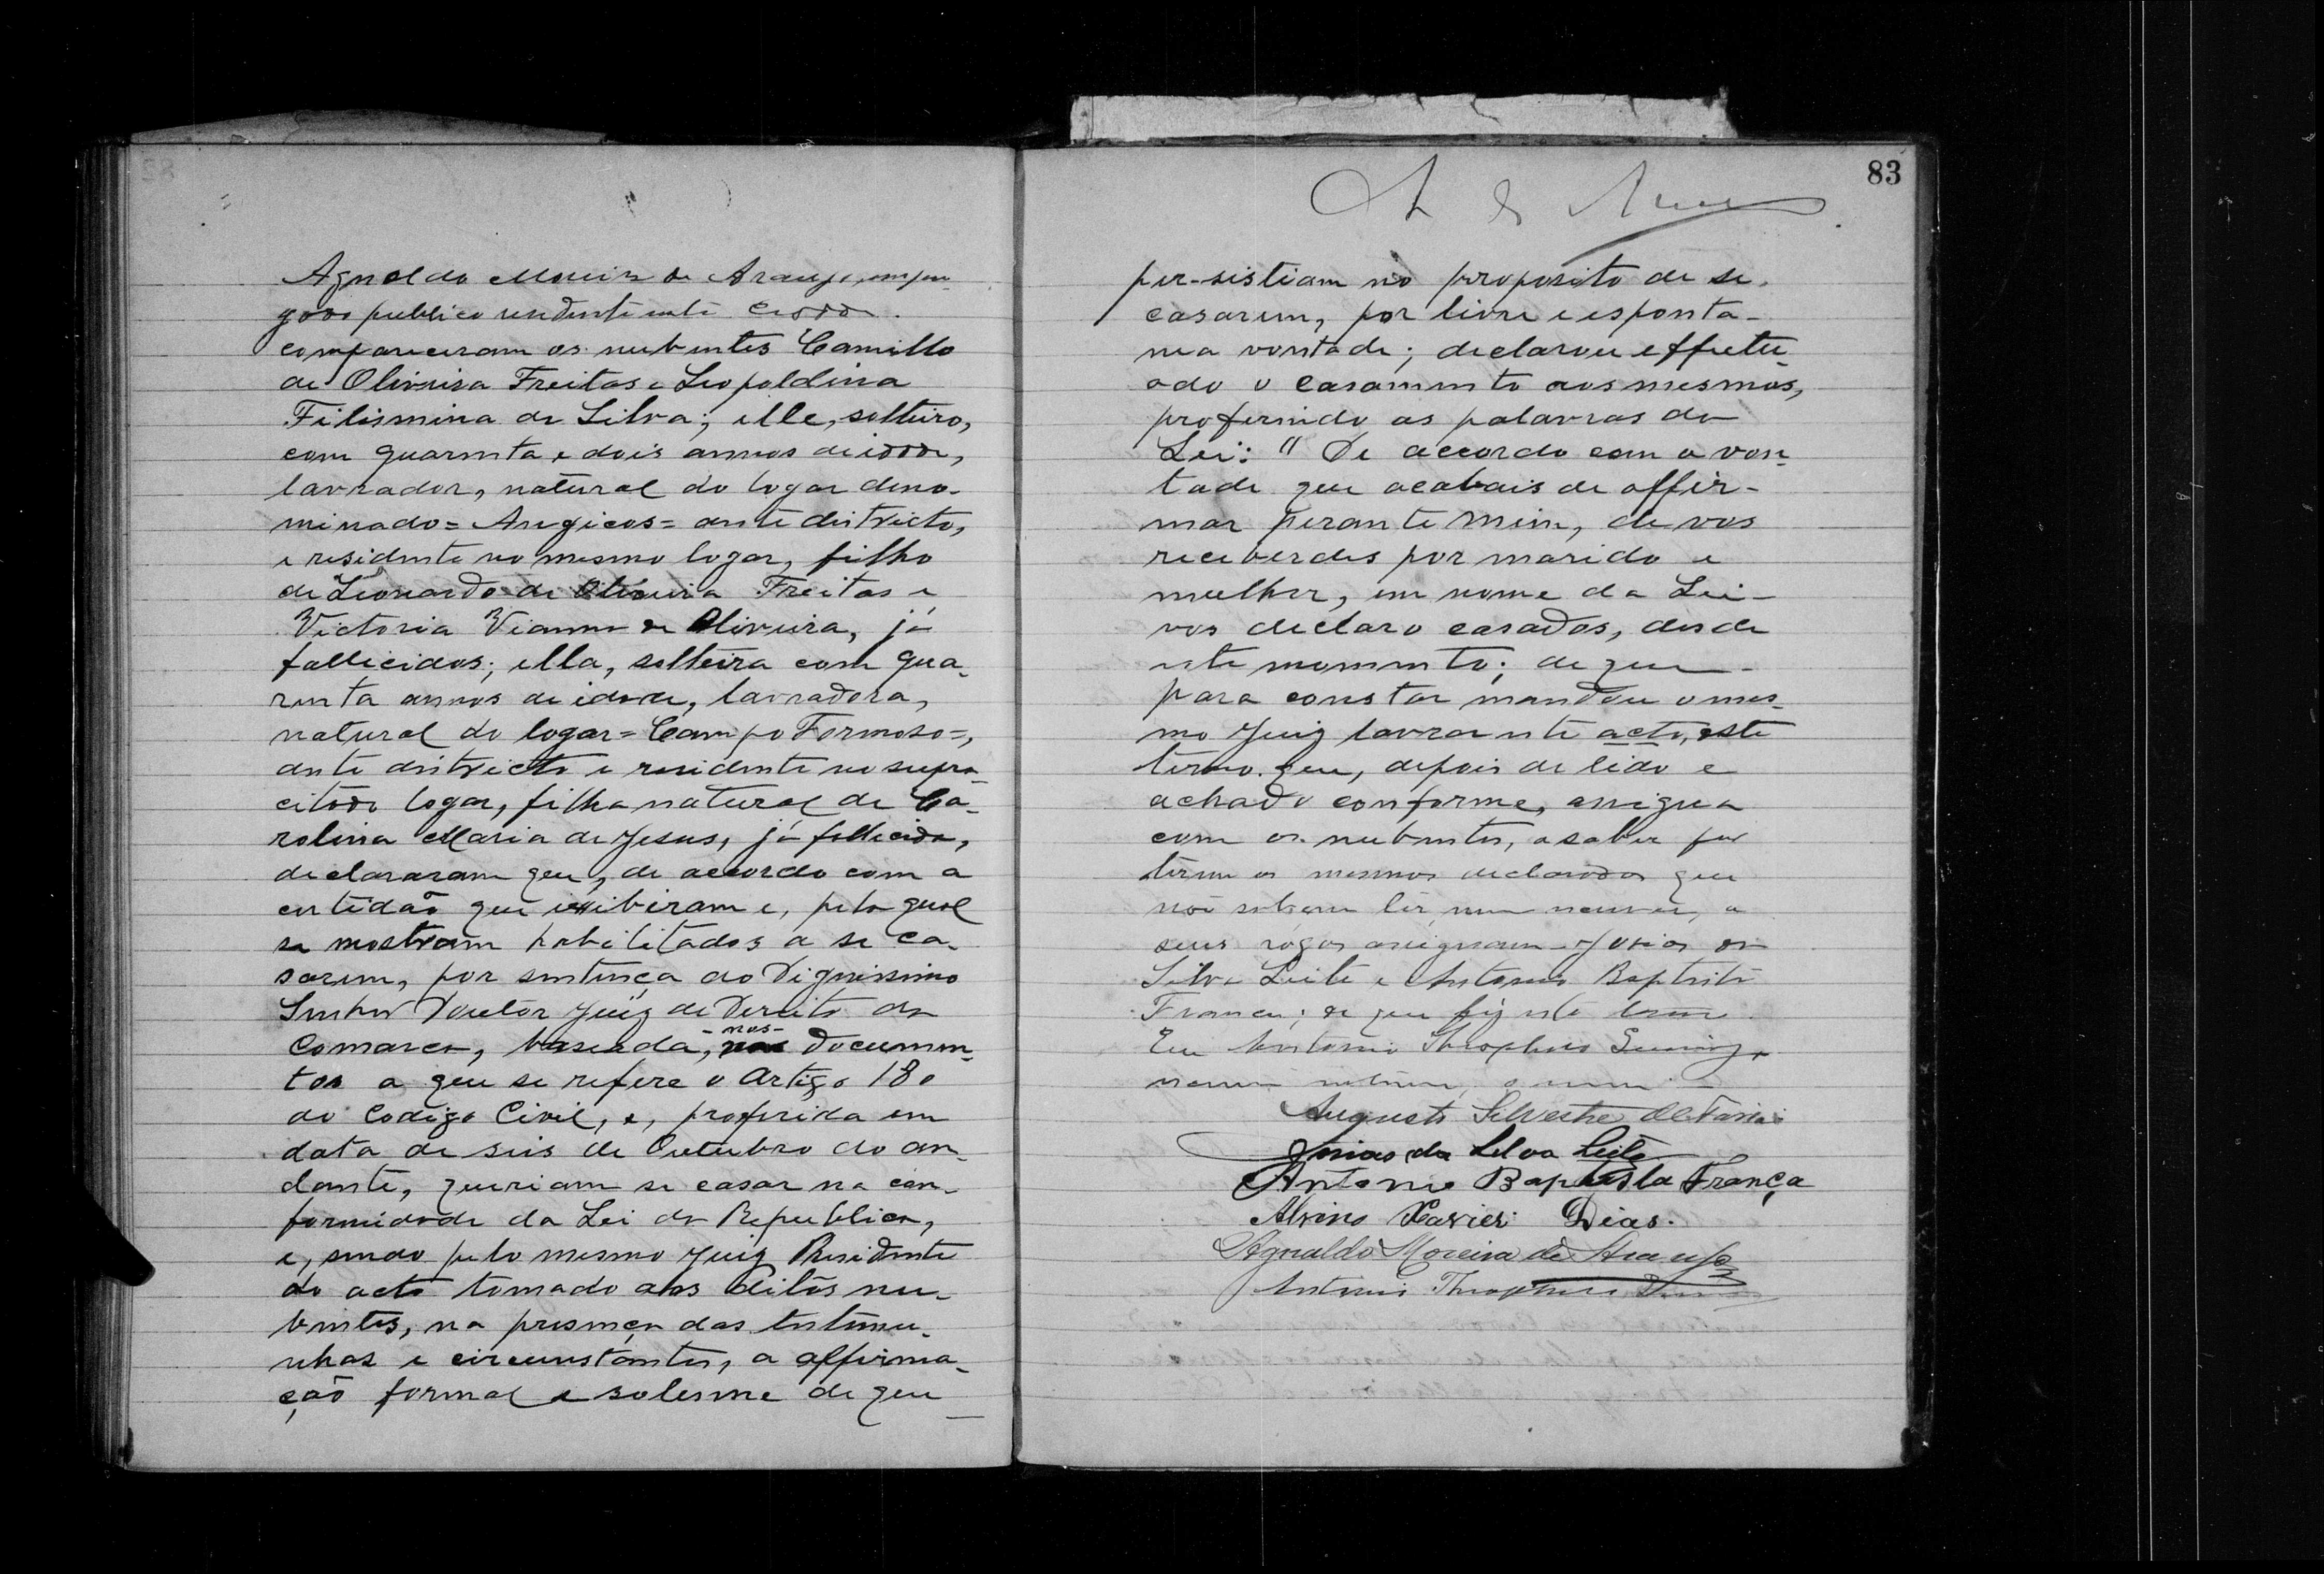 Agnaldo Moreira de Araujo, empre
gado publico residente nesta Cidade.
compareceram os nubentes Camillo
de Oliveira Freitas e Leopoldina
Felismina da Silva; elle, solteiro,
com quarenta e dois annos de idade,
lavrador, natural do logar deno-
minado = Angicos = deste districto,
e residente no mesmo logar, filho
de Leonardo de Oliveira Freitas e
Victoria Vianna de Oliveira, já
fallecidos; ella, solteira com qua-
renta annos de idade, lavradora,
natural do logar = Campo Formoso =,
deste districto e residente no supra-
citado logar, filha natural de Ca-
rolina Maria de Jesus, já fallecida,
declararam que, de accordo com a
certidão que exibiram e, pela qual
se mostram habilitados a se ca-
sarem, por sentença do Dignissimo
Senhor Doutor Juiz de Direito da
Comarca, baseada, -nos- documen-
tos a que se refere o Artigo 180
do Codigo Civil, e, proferida em
data de seis de Outubro do an-
dante, queriam se casar na con-
formidade da Lei da Republica,
e, sendo pelo mesmo Juiz Presidente
do acto tomado aos ditos nu-
bentes, na presença das testemu-
nhas e circunstantes, a affirma-
ção formal e solemne de que
83
per-sistiam no proposito de se
casarem, por livre e esponta-
nea vontade; declarou effetu-
ado o casamento aos mesmos,
proferindo as palavras da
Lei: "De accordo com a von-
tade que acabais de affir-
mar perante mim, de vos
receberdes por marido e
mulher, em nome da Lei-
vos declaro casados, desde
este momento; de que-
para constar mandou o mes-
mo Juiz lavrar este acto, este
termo que, depois de lido e
achado conforme, assigna
com os nubentes, a saber por
terem os mesmos declarados que
não sabem ler nem escrever, a
seus rogos assignam Josias da
Silva Leite e Antonio Baptista
França; de que fiz este termo.
Eu Antonio Theophilo
Augusto Silvestre de Faria
Josias da Silva Leite
Antonio Baptista França
Alvino Xavier Dias.
Agnaldo Moreira de Araujo
Antonio Theophilo